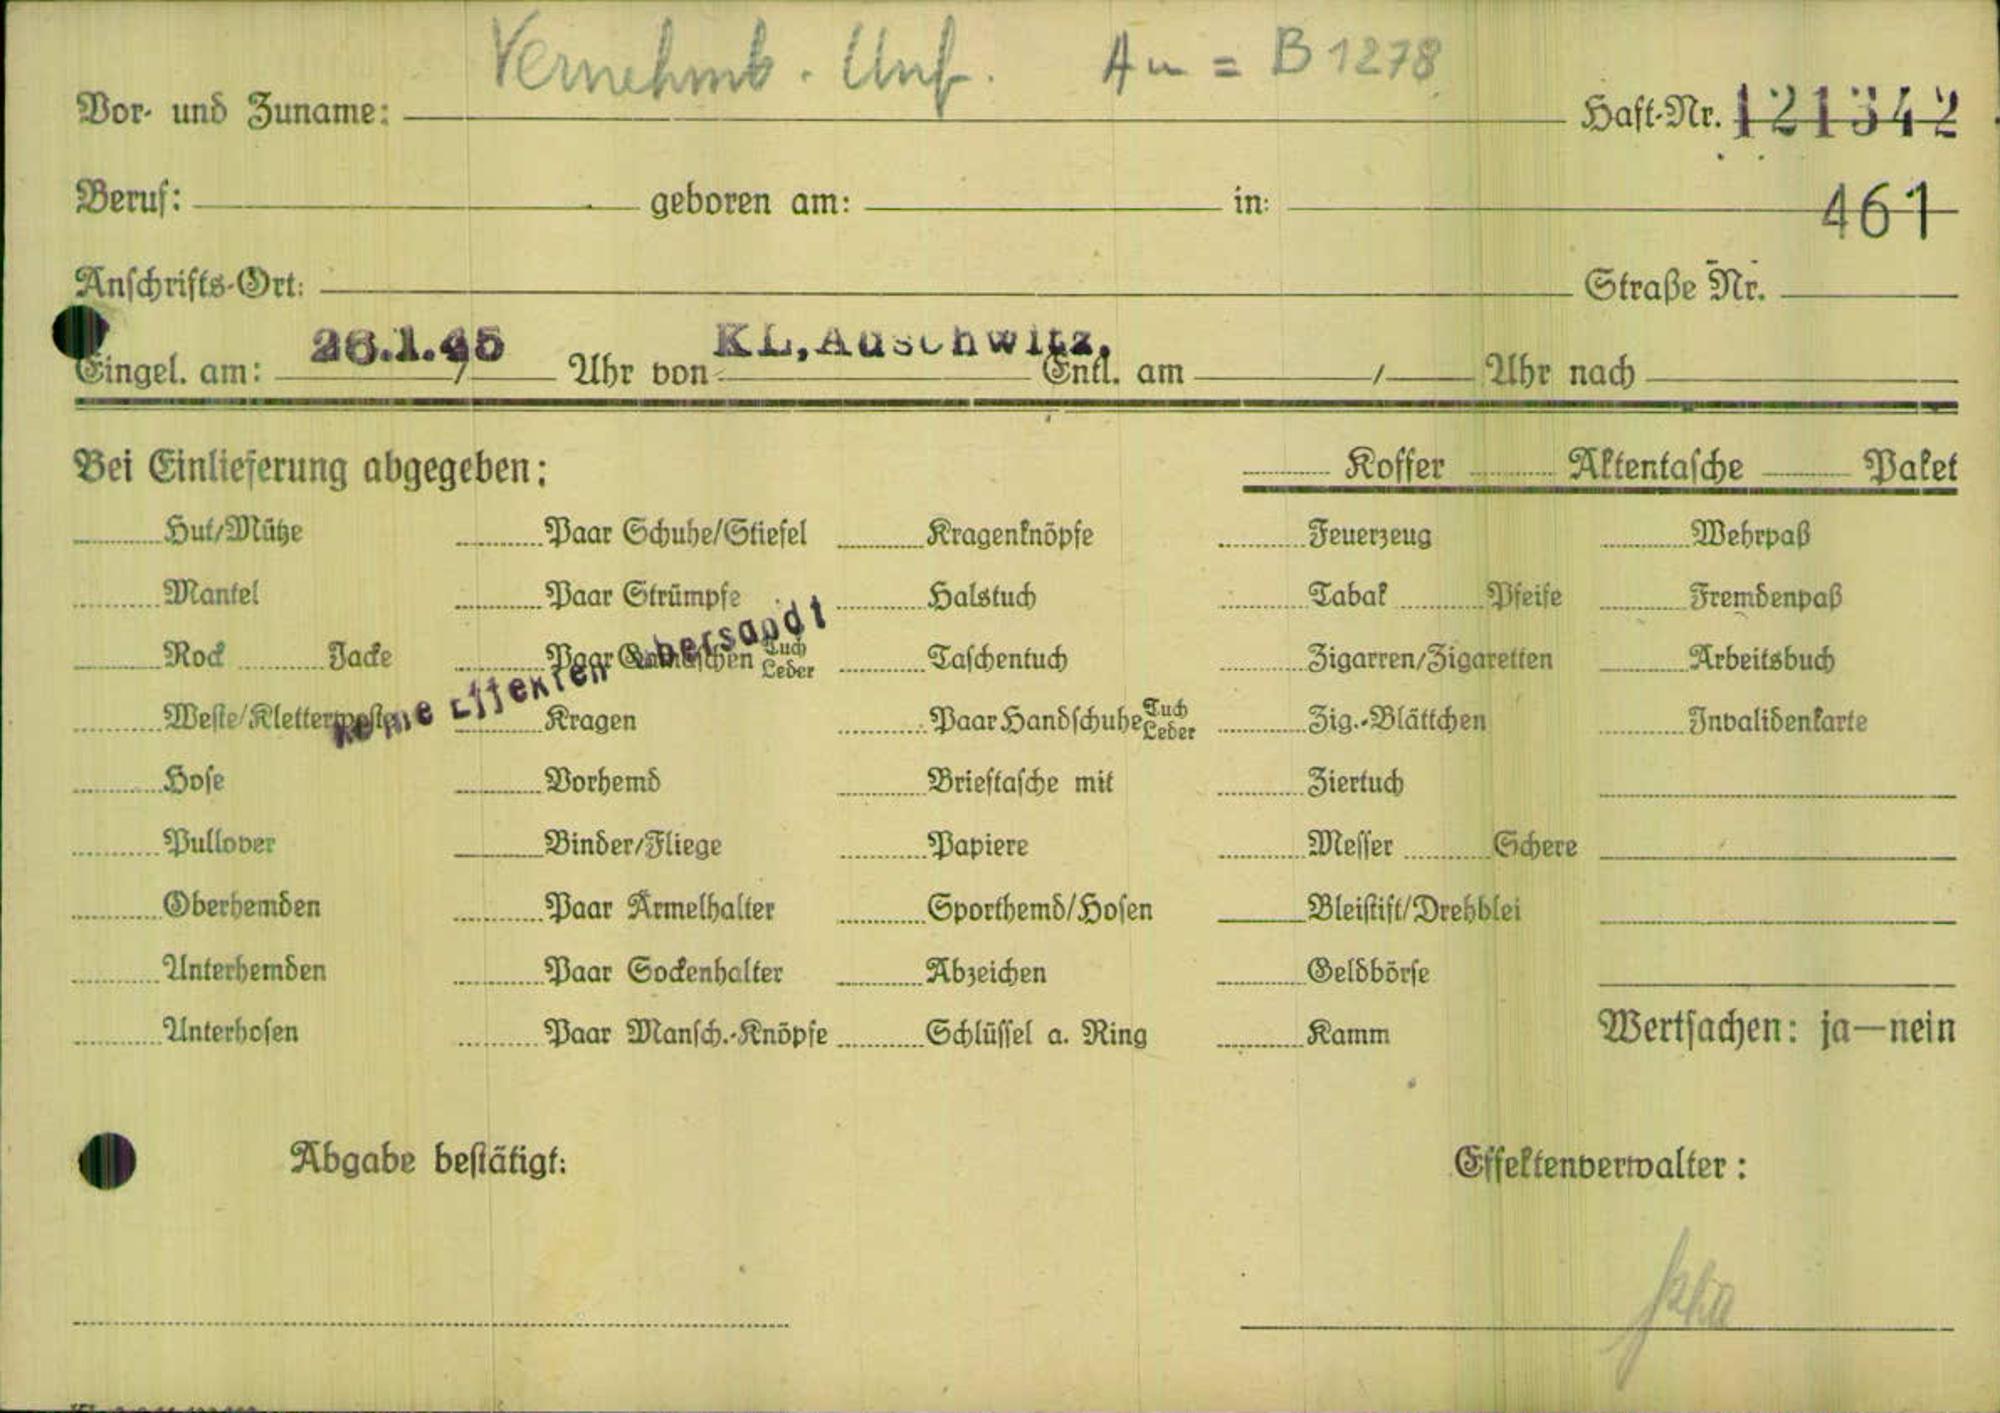 Vernehmb. Unf. Au = B 1278
Vor- und Zuname: Haft-Nr. 121342
Beruf: geboren am: in: 461
Anschrifts-Ort: Straße Nr.
26.1.45 KL. Auschwitz.
Eingel. am: / Uhr von Entl. am / Uhr nach
Bei Einlieferung abgegeben: Koffer Aktentasche Paket
Hut/Mütze Paar Schuhe/Stiefel Kragenknöpfe Feuerzeug Wehrpaß
Mantel Paar Strümpfe Halstuch Tabak Pfeife Fremdenpaß
Rock Jacke Paar Gamaschen Tuch Leder Taschentuch Zigarren/Zigaretten Arbeitsbuch
keine Effekten übersandt
Weste/Kletterweste Kragen Paar Handschuhe Tuch Leder Zig.-Blättchen Invalidenkarte
Hose Vorhemd Brieftasche mit Ziertuch
Pullover Binder/Fliege Papiere Messer Schere
Oberhemden Paar Ärmelhalter Sporthemd/Hosen Bleistift/Drehblei
Unterhemden Paar Sockenhalter Abzeichen Geldbörse
Unterhosen Paar Mansch.-Knöpfe Schlüssel a. Ring Kamm Wertsachen: ja—nein
Abgabe bestätigt: Effektenverwalter: